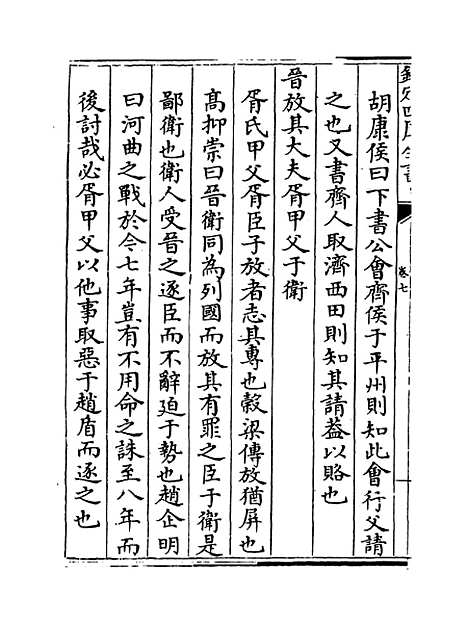 欽定四庫全書
卷七
胡康侯曰下書公會齊侯于平州則知此會行父請
之也又書齊人取濟西田則知其請葢以賂也
晉放其大夫胥甲父于衛
胥氏甲父胥臣子放者志其專也榖梁傳放猶屏也
髙抑崇曰晉衛同為列國而放其有罪之臣于衛是
鄙衛也衛人受晉之逐臣而不辭廹于勢也趙企明
曰河曲之戰於今七年豈有不用命之誅至八年而
後討哉必胥甲父以他事取惡于趙盾而逐之也